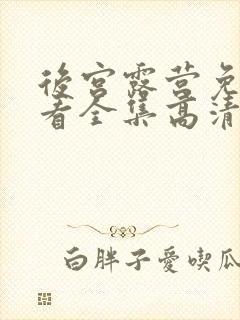 後宮露营免
看全集高清
白胖子愛喫瓜